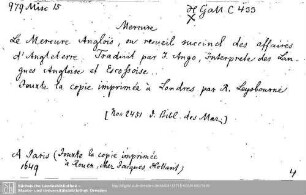 979 Misc 15
H Gall C 433
Mercure
Le Mercure Anglois, ou recueil succinct des affaires
d'Angleterre. Traduit par J. Ango, Interprete des Lan-
gues Angloise et Escossoise.
Jouxte la copie imprimée à Londres par R. Leybourne
[Aus 2431 J. Bibl. des Maz.]
A Paris (Jouxte la copie imprimée
1649 à Rouen, chez Jacques Hollant)
4